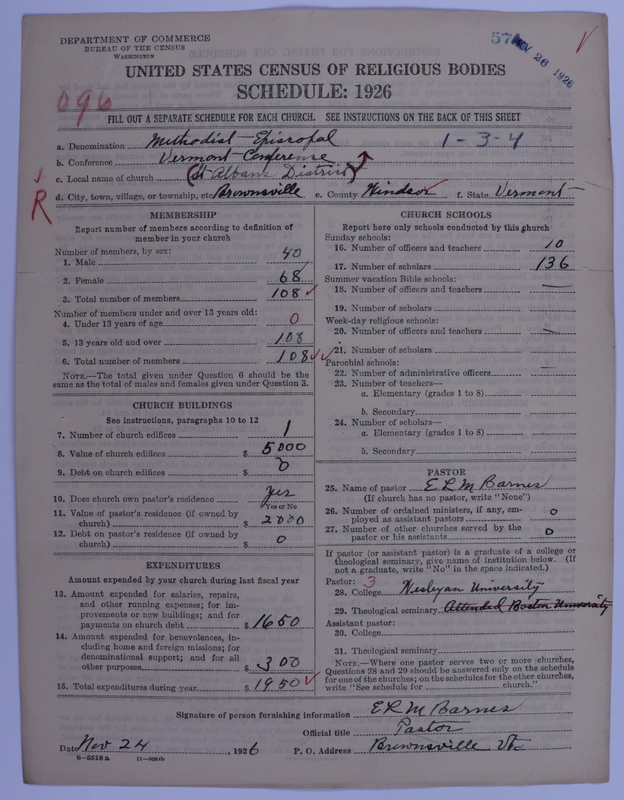 DEPARTMENT OF COMMERCE
BUREAU OF THE CENSUS
WASHINGTON
NOV 26 1926
UNITED STATES CENSUS OF RELIGIOUS BODIES
SCHEDULE: 1926
096
FILL OUT A SEPARATE SCHEDULE FOR EACH CHURCH. SEE INSTRUCTIONS ON THE BACK OF THIS SHEET
a. Denomination Methodist - Episcopal 1-3-4
b. Conference Vermont Conference
c. Local name of church (St Albans District)
d. City, town, village, or township, etc. Brownsville e. County Windsor f. State Vermont
R
MEMBERSHIP
Report number of members according to definition of
member in your church
Number of members, by sex:
1. Male 40
2. Female 68
3. Total number of members 108
Number of members under and over 13 years old:
4. Under 13 years of age 0
5. 13 years old and over 108
6. Total number of members 108
NOTE.—The total given under Question 6 should be
same as the total of males and females given under Question 3.
CHURCH BUILDINGS
See instructions, paragraphs 10 to 12
7. Number of church edifices 1
8. Value of church edifices $ 5000
9. Debt on church edifices $ 0
10. Does church own pastor's residence yes
Yes or No
11. Value of pastor's residence (if owned by
church) $ 2000
12. Debt on pastor's residence (if owned by
church) $ 0
EXPENDITURES
Amount expended by your church during last fiscal year
13. Amount expended for salaries, repairs,
and other running expenses; for im-
provements or new buildings; and for
payments on church debt $ 1650
14. Amount expended for benevolences, in-
cluding home and foreign missions; for
denominational support; and for all
other purposes $ 300
15. Total expenditures during year $ 1950
CHURCH SCHOOLS
Report here only schools conducted by this church
Sunday schools:
16. Number of officers and teachers 10
17. Number of scholars 136
Summer vacation Bible schools:
18. Number of officers and teachers —
19. Number of scholars
Week-day religious schools:
20. Number of officers and teachers —
21. Number of scholars
Parochial schools:
22. Number of administrative officers —
23. Number of teachers—
a. Elementary (grades 1 to 8)
b. Secondary
24. Number of scholars—
a. Elementary (grades 1 to 8)
b. Secondary
PASTOR
25. Name of pastor E R M Barnes
(If church has no pastor, write "None")
26. Number of ordained ministers, if any, em-
ployed as assistant pastors 0
27. Number of other churches served by the
pastor or his assistants 0
If pastor (or assistant pastor) is a graduate of a college or
theological seminary, give name of institution below. (If
not a graduate, write "No" in the space indicated.)
Pastor: 3
28. College Wesleyan University
29. Theological seminary Attended Boston University
Assistant pastor:
30. College
31. Theological seminary
NOTE.—Where one pastor serves two or more churches,
Questions 28 and 29 should be answered only on the schedule
for one of the churches; on the schedules for the other churches,
write "See schedule for church."
Signature of person furnishing information E R M Barnes
Official title Pastor
Date Nov 24, 1926 P. O. Address Brownsville Vt
8-5518a